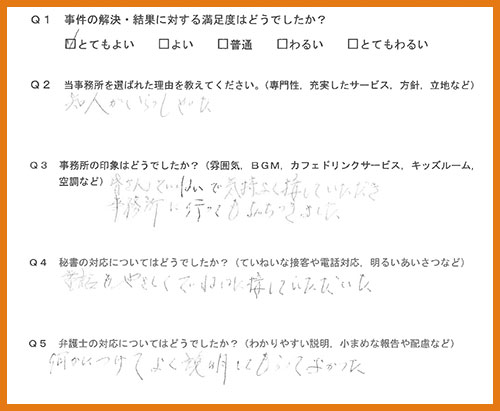 Q1 事件の解決・結果に対する満足度はどうでしたか？
☑とてもよい □よい □普通 □わるい □とてもわるい
Q2 当事務所を選ばれた理由を教えてください。（専門性，充実したサービス，方針，立地など）
知人がいらっしゃいた
Q3 事務所の印象はどうでしたか？（雰囲気，BGM，カフェドリンクサービス，キッズルーム，
空調など）皆さんていねいで気持よく接していただき
事務所に行ってもおちつきました
Q4 秘書の対応についてはどうでしたか？（ていねいな接客や電話対応，明るいあいさつなど）
電話もやさしくていねいに接していただいた
Q5 弁護士の対応についてはどうでしたか？（わかりやすい説明，小まめな報告や配慮など）
何かにつけてよく説明してもらってよかった